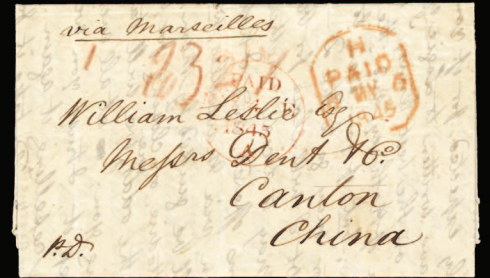 via Marseilles
H
PAID
MY 6
PAID
1845
William Leslie Esq
Messrs Dent & Co
Canton
China
P.D.